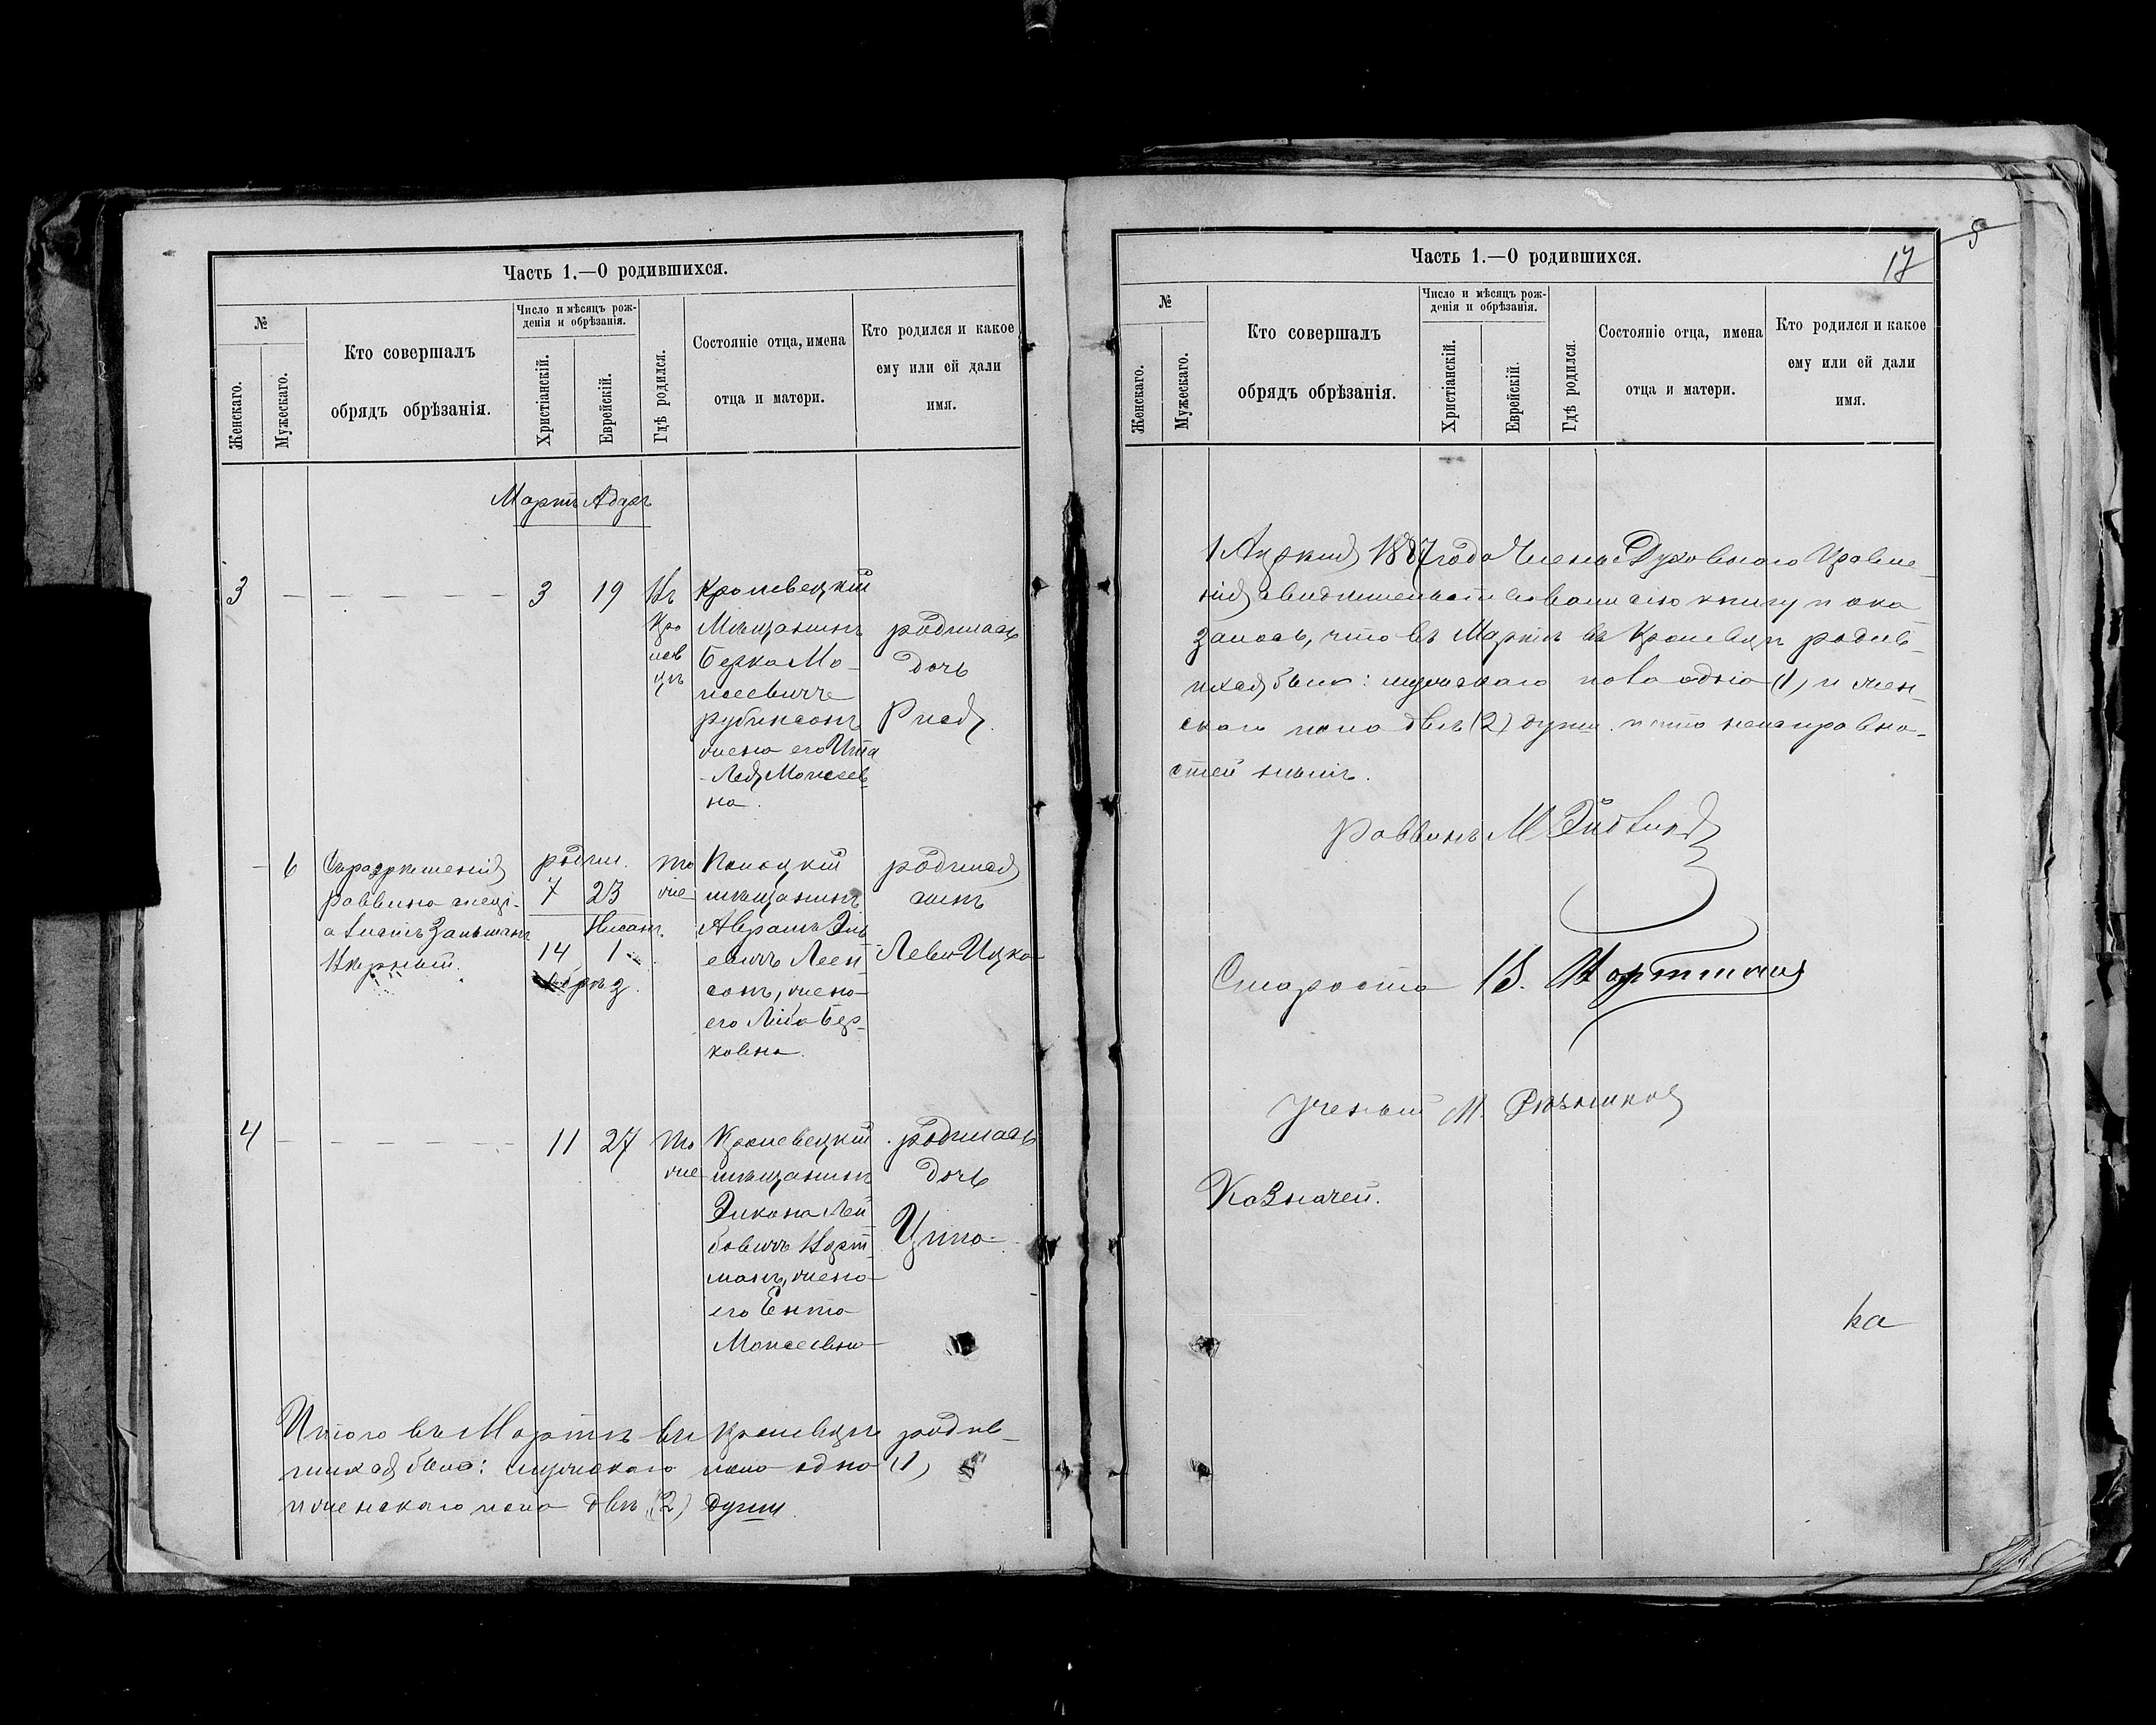 Часть 1.—О родившихся.
№
Женскаго.
Мужескаго.
Кто совершалъ
обрядъ обрѣзанія.
Число и мѣсяцъ рож-
денія и обрѣзанія.
Христіанскій.
Еврейскій.
Гдѣ родился.
Состояніе отца, имена
отца и матери.
Кто родился и какое
ему или ей дали
имя.
Мартъ Адаръ
3 — — — — — 3 19
Въ
Кро
лев
цѣ
Кролевецкій
Мѣщанинъ
Берка Мо-
исеевичъ
Рубинсонъ
жена его Ита
-Лея Моисеев-
на.
родилась
дочь
Рися.
6
Съ разрѣшенія
раввина
Залманъ
родил.
7 23
Нисанъ
14 1
обрѣз.
то
же
мѣщанинъ
Абрамъ
сонъ, жена
его Либа Бер-
ковна.
родился
сынъ
Левъ-Ицко
4 — — — — — 11 27
то
же
Кролевецкій
мѣщанинъ
Лей
бовичъ Норт
манъ, жена
его Ента
Моисеевна
родилась
дочь
Ципа
Итого въ Мартѣ въ Кролевцѣ родив-
шихся было: мужескаго пола одно (1)
и женскаго пола двѣ (2) души.
Часть 1.—О родившихся.
17
5
№
Женскаго.
Мужескаго.
Кто совершалъ
обрядъ обрѣзанія.
Число и мѣсяцъ рож-
денія и обрѣзанія.
Христіанскій.
Еврейскій.
Гдѣ родился.
Состояніе отца, имена
отца и матери.
Кто родился и какое
ему или ей дали
имя.
1 Апрѣля 1887 года Члены Духовнаго Правле-
нія свидѣтельствовали сію книгу и ока
залось, что въ Мартѣ въ Кролевцѣ родив-
шихся было: мужескаго пола одна (1) и жен-
скаго пола двѣ (2) души. и что неисправно-
стей нѣтъ.
Раввинъ М
Староста
Ученый М. Рѣзниковъ
Казначей.
ка